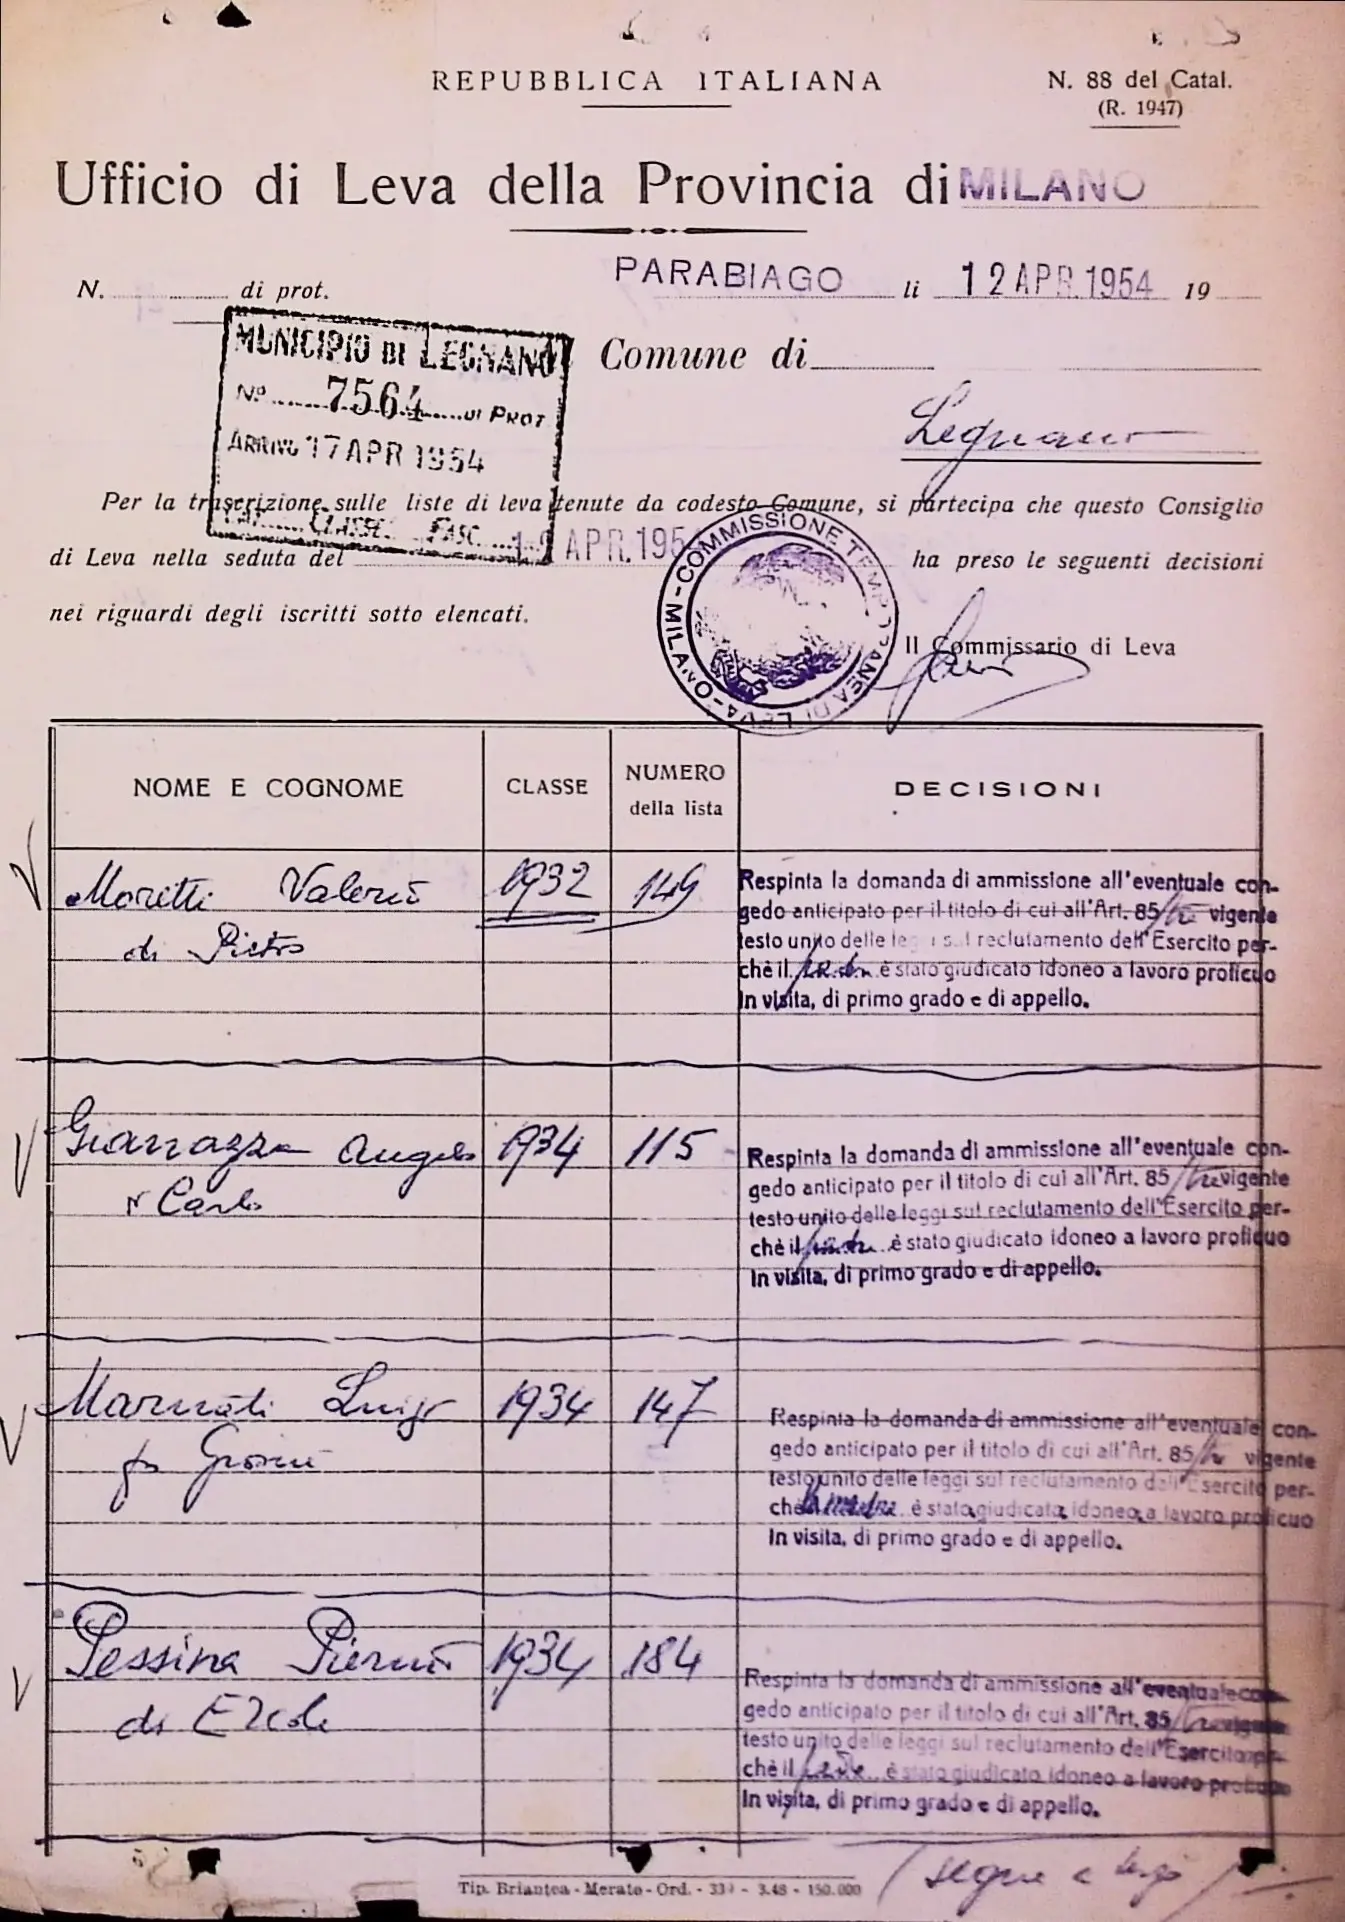 REPUBBLICA ITALIANA
N. 88 del Catal.
(R. 1947)
Ufficio di Leva della Provincia di MILANO
N. di prot.
PARABIAGO li 12 APR. 1954 19
MUNICIPIO DI LEGNANO
No 7564 DI PROT
ARRIVO 17 APR 1954
CLASSE FASC.
Comune di
Legnano
Per la trascrizione sulle liste di leva tenute da codesto Comune, si partecipa che questo Consiglio
di Leva nella seduta del 12 APR. 1954 ha preso le seguenti decisioni
nei riguardi degli iscritti sotto elencati.
COMMISSIONE TEMPORANEA DI LEVA - MILANO
Il Commissario di Leva
NOME E COGNOME
CLASSE
NUMERO
della lista
DECISIONI
Moretti Valerio
di Pietro
1932
149
Respinta la domanda di ammissione all'eventuale con-
gedo anticipato per il titolo di cui all'Art. 85 vigente
testo unito delle leggi sul reclutamento dell'Esercito per-
chè il è stato giudicato idoneo a lavoro proficuo
in visita, di primo grado e di appello.
Angelo
Carlo
1934
115
Respinta la domanda di ammissione all'eventuale con-
gedo anticipato per il titolo di cui all'Art. 85 vigente
testo unito delle leggi sul reclutamento dell'Esercito per-
chè il è stato giudicato idoneo a lavoro proficuo
in visita, di primo grado e di appello.
Marnati Luigi
1934
147
Respinta la domanda di ammissione all'eventuale con-
gedo anticipato per il titolo di cui all'Art. 85 vigente
testo unito delle leggi sul reclutamento dell'Esercito per-
chè è stato giudicato idoneo a lavoro proficuo
in visita, di primo grado e di appello.
Pessina Pierino
di Ercole
1934
184
Respinta la domanda di ammissione all'eventuale con-
gedo anticipato per il titolo di cui all'Art. 85 vigente
testo unito delle leggi sul reclutamento dell'Esercito per-
chè il è stato giudicato idoneo a lavoro proficuo
in visita, di primo grado e di appello.
(segue a tergo)
Tip. Briantea - Merate - Ord. - 3.48 - 150.000